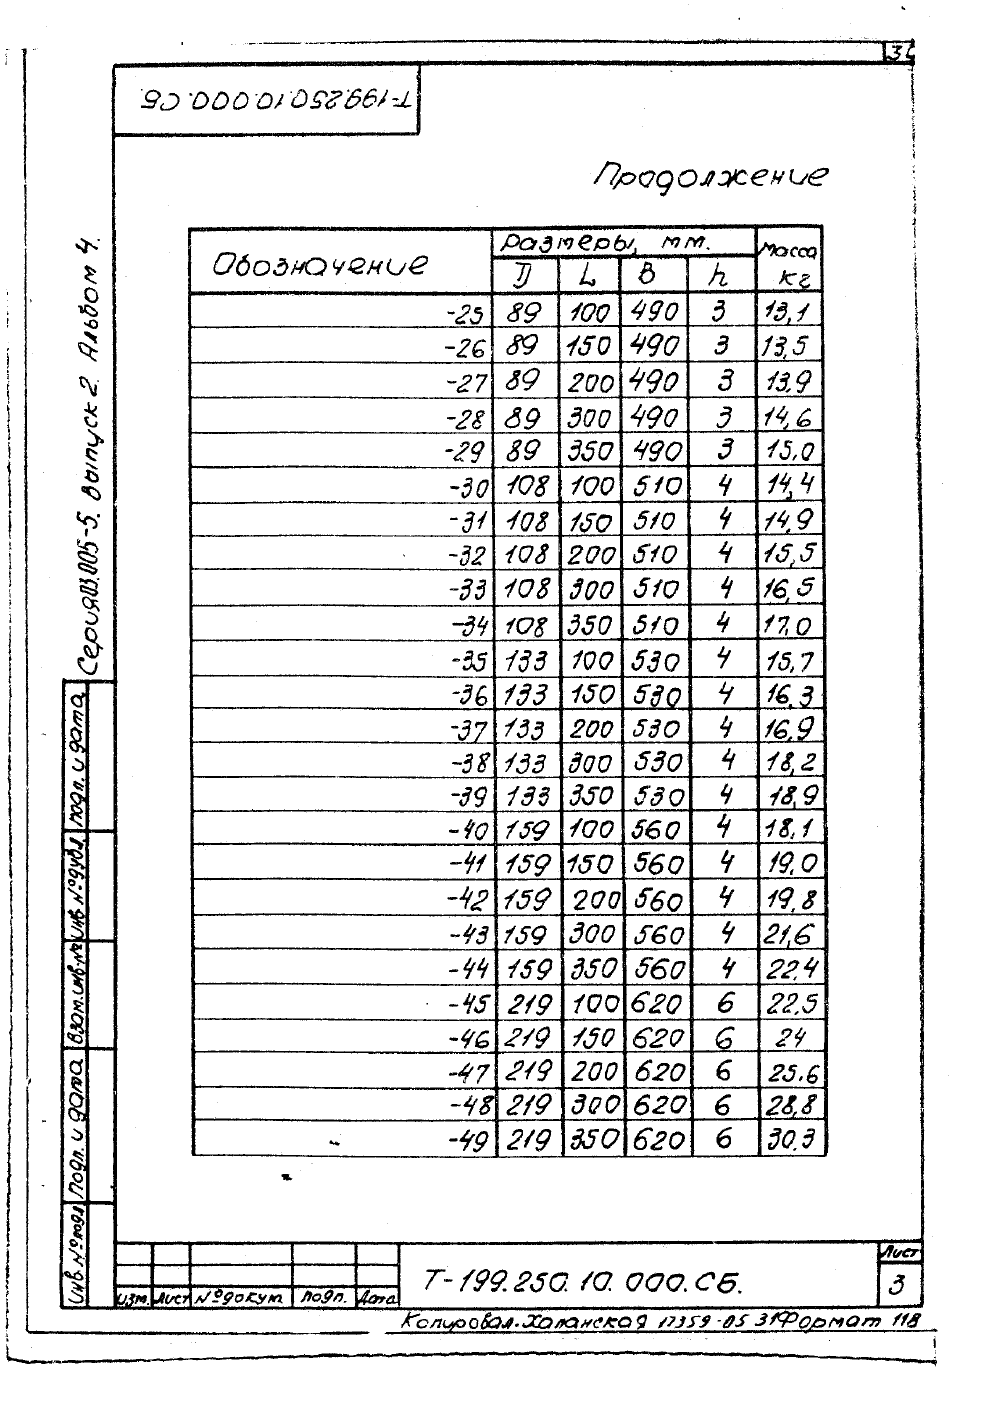 3
Т-199.250.10.000.СБ
Продолжение
Серия 3.005-5. Выпуск 2 Альбом 4.
Обозначение Размеры, мм. Масса кг
D L B h
-25 89 100 490 3 13,1
-26 89 150 490 3 13,5
-27 89 200 490 3 13,9
-28 89 300 490 3 14,6
-29 89 350 490 3 15,0
-30 108 100 510 4 14,4
-31 108 150 510 4 14,9
-32 108 200 510 4 15,5
-33 108 300 510 4 16,5
-34 108 350 510 4 17,0
-35 133 100 530 4 15,7
-36 133 150 530 4 16,3
-37 133 200 530 4 16,9
-38 133 300 530 4 18,2
-39 133 350 530 4 18,9
-40 159 100 560 4 18,1
-41 159 150 560 4 19,0
-42 159 200 560 4 19,8
-43 159 300 560 4 21,6
-44 159 350 560 4 22.4
-45 219 100 620 6 22.5
-46 219 150 620 6 24
-47 219 200 620 6 25.6
-48 219 300 620 6 28,8
-49 219 350 620 6 30.3
Инв. № подл. Подп. и дата Взам. инв. № Инв № дубл. подп. и дата
Изм. Лист № докум. Подп. Дата
Т-199.250.10.000.СБ.
Лист
3
Копировал. 17359-05 31 Формат 11В